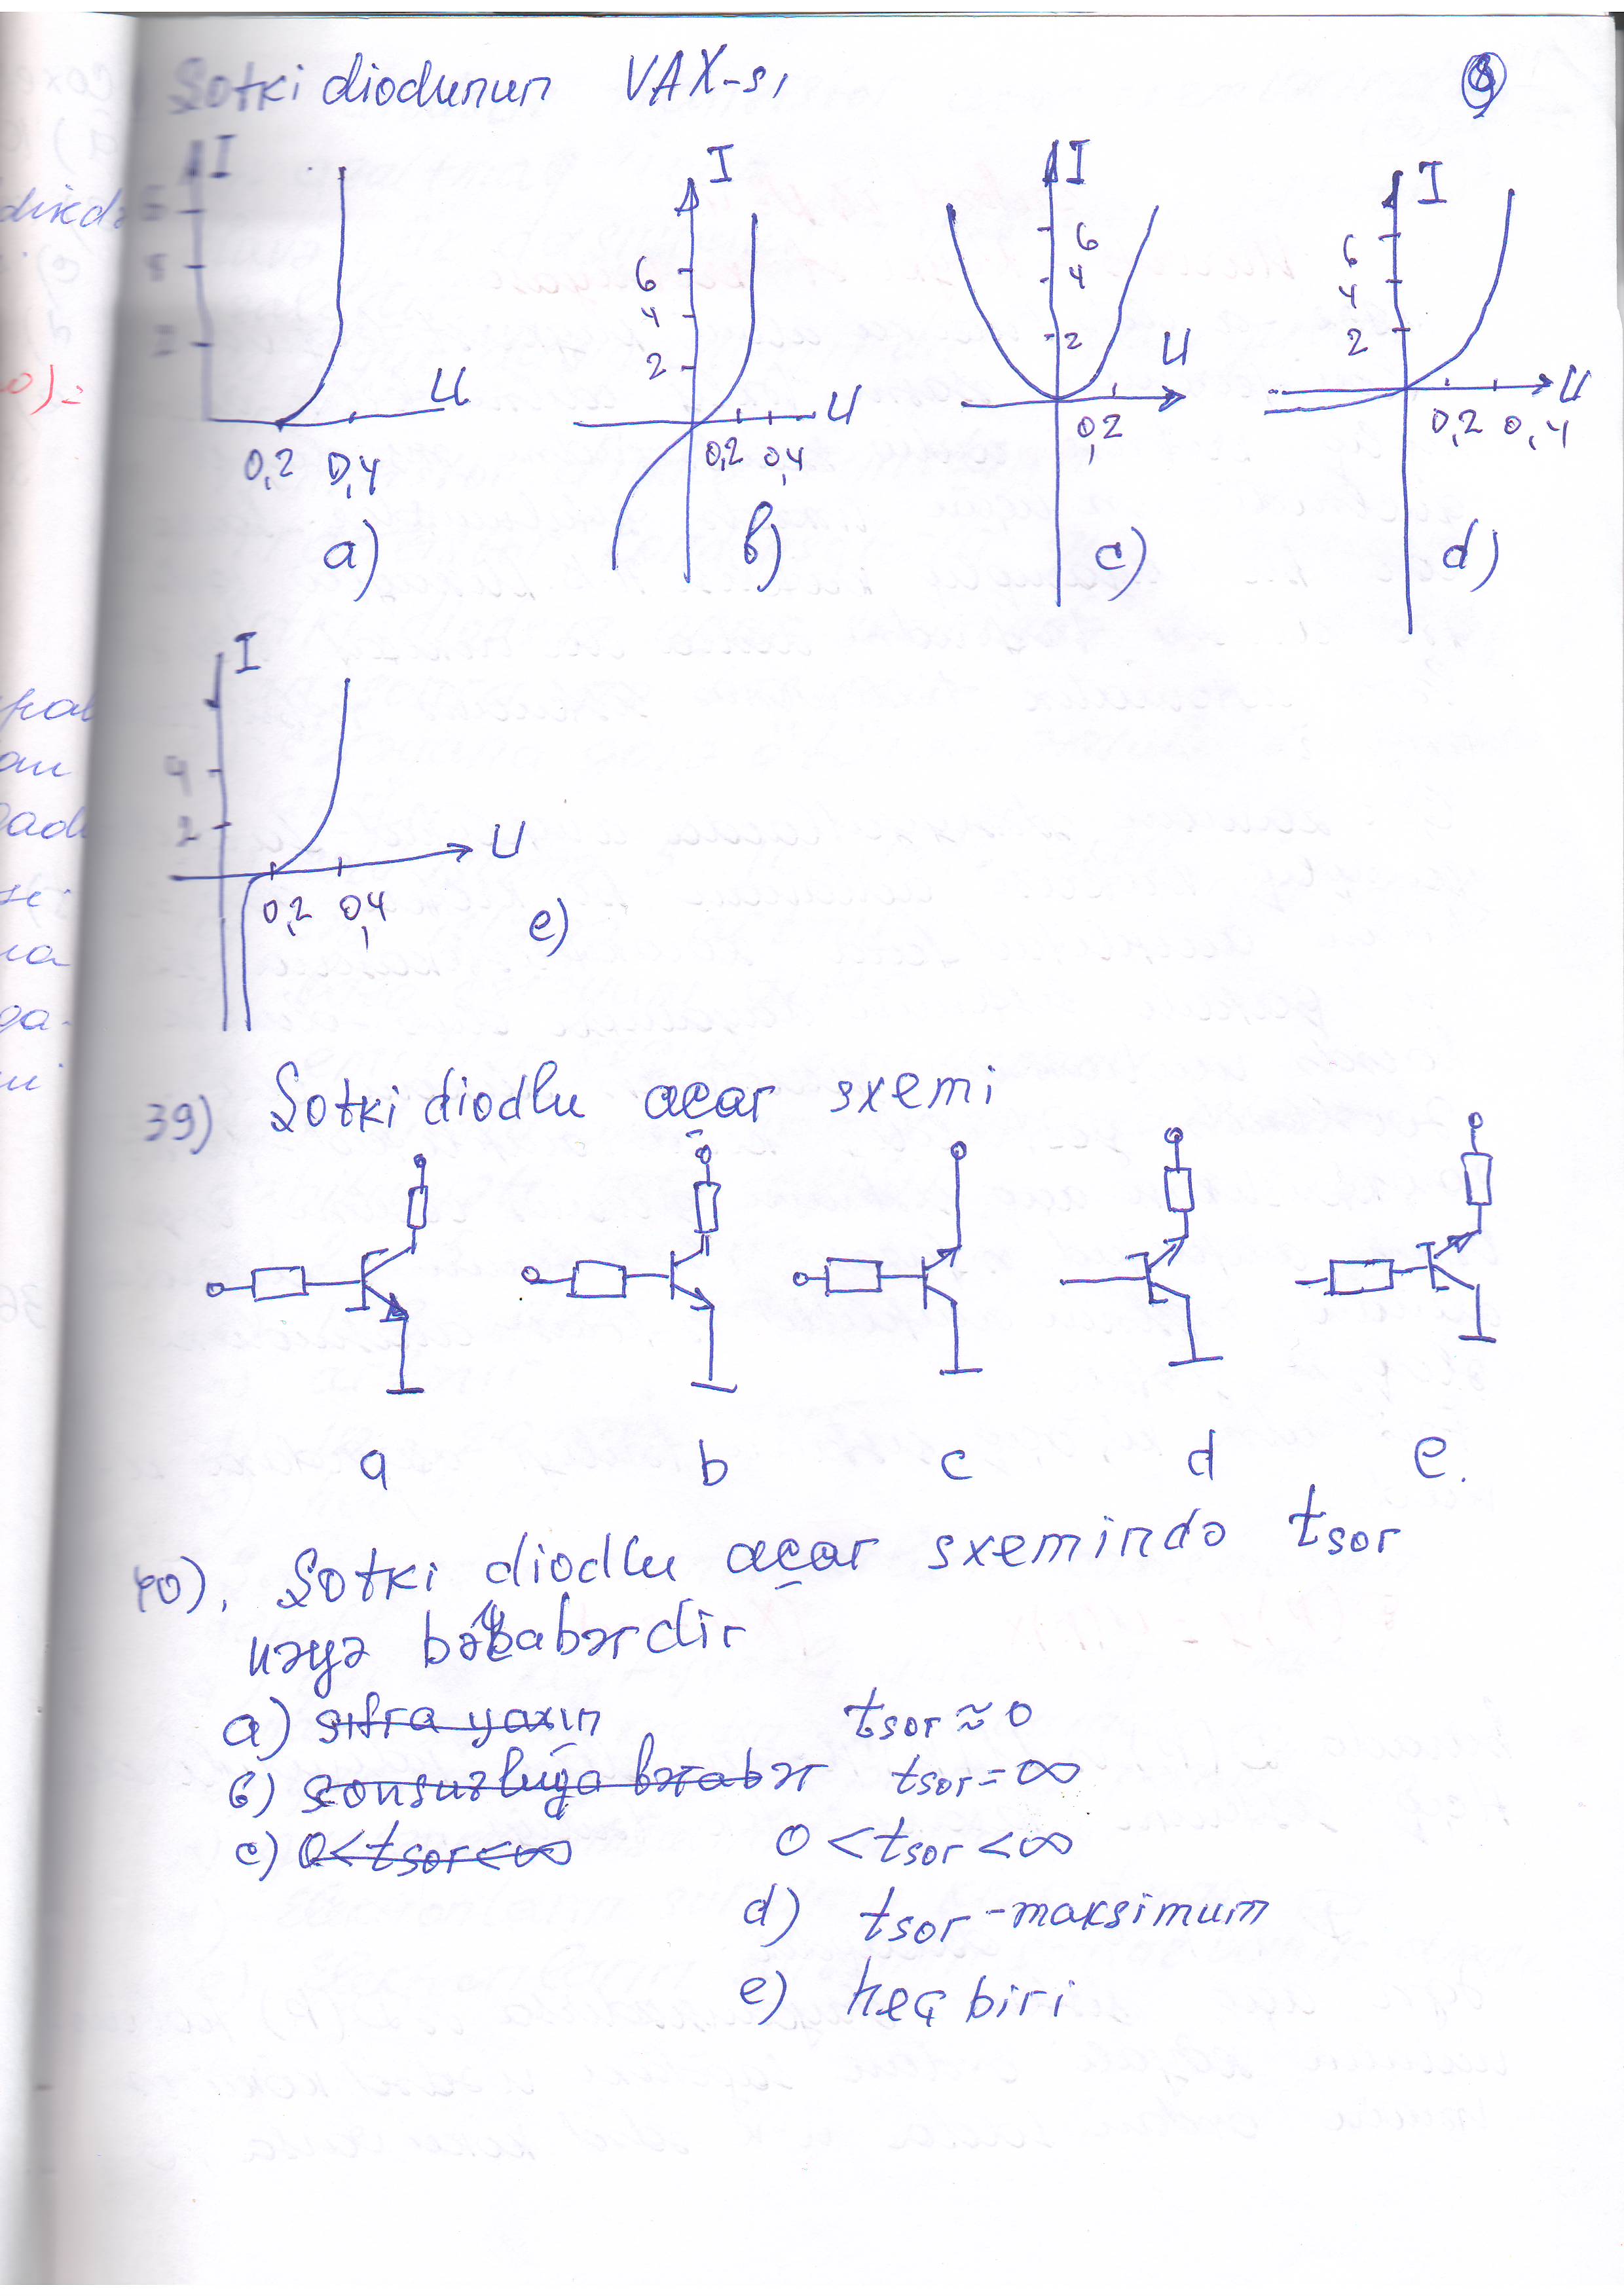 Şotki diodunun VAX-sı 8
I I I I
6 6 6 6
4 4 4 4
2 2 2 2
U U U U
0,2 0,4 0,2 0,4 0,2 0,2 0,4
a) b) c) d)
I
4
2
U
0,2 0,4
e)
39) Şotki diodlu açar sxemi
a b c d e.
40). Şotki diodlu açar sxemində tsor
nəyə bərabərdir
a) sıfra yaxın tsor ≈ 0
b) sonsuzluğa bərabər tsor = ∞
c) 0 < tsor < ∞ 0 < tsor < ∞
d) tsor - maksimum
e) heç biri